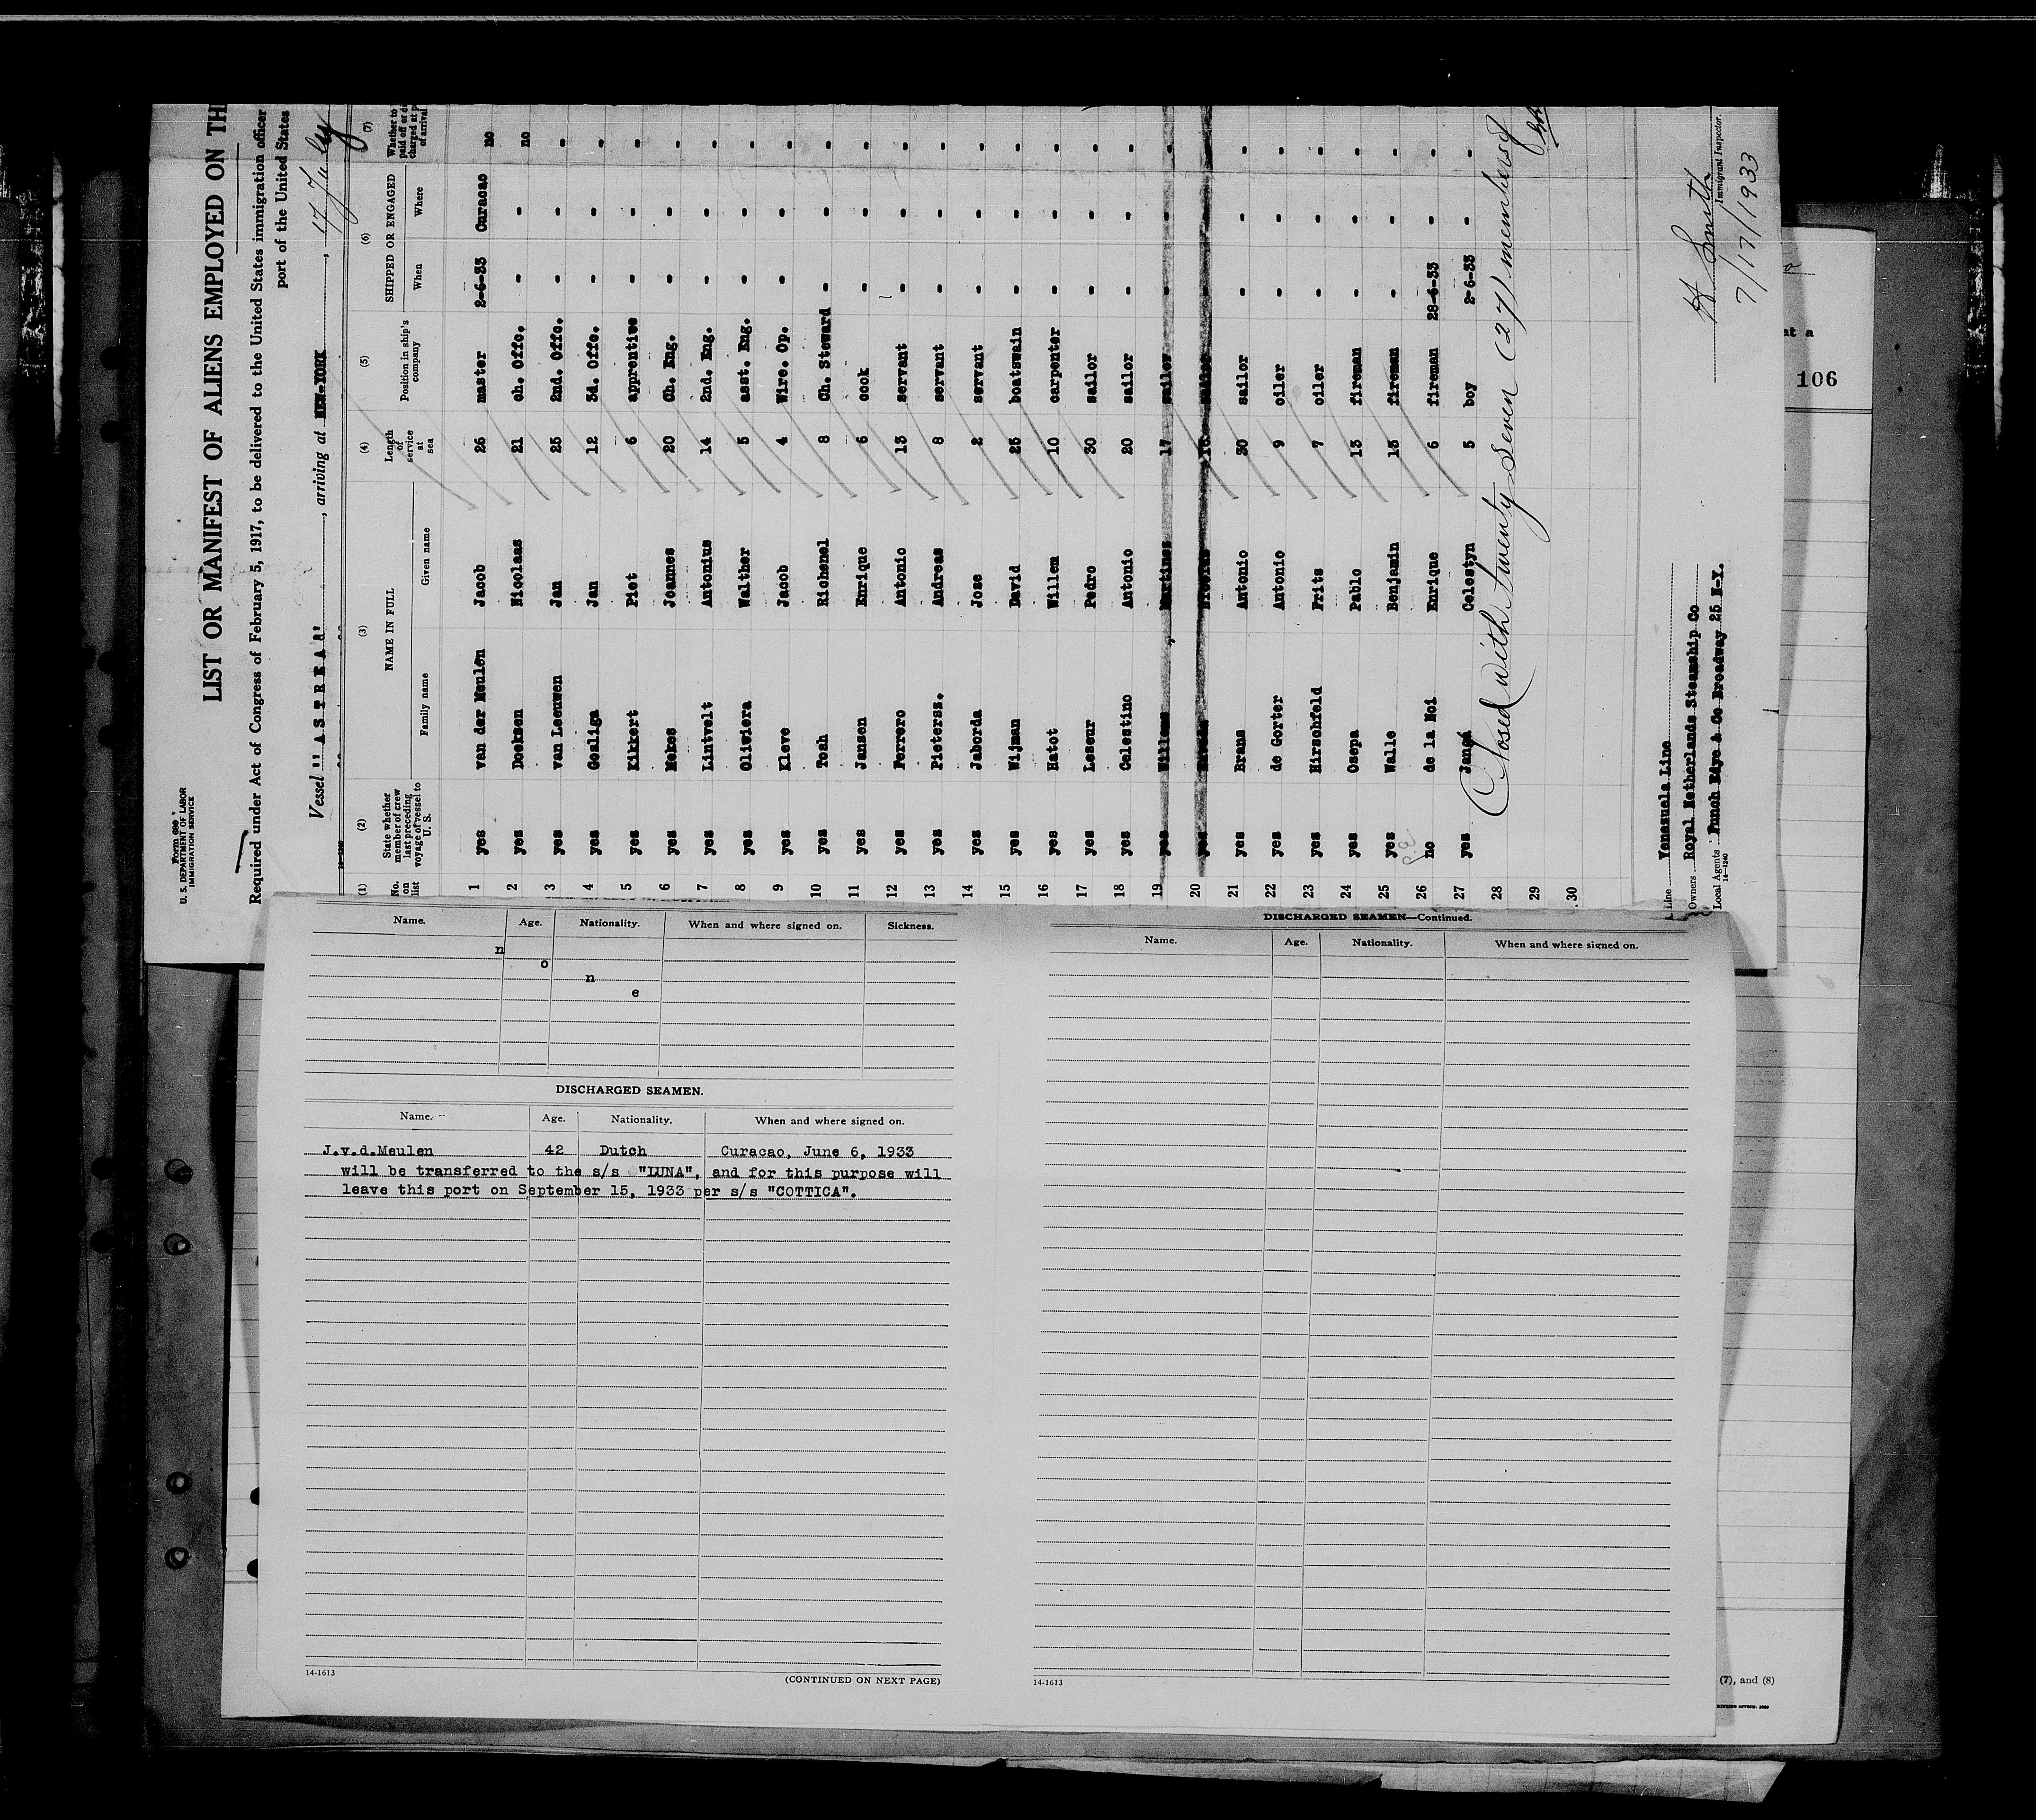 Form 680
U. S. DEPARTMENT OF LABOR
IMMIGRATION SERVICE
LIST OR MANIFEST OF ALIENS EMPLOYED ON TH
Required under Act of Congress of February 5, 1917, to be delivered to the United States immigration officer
port of the United States
Vessel "ASTREA", arriving at NEW-YORK, 17 July
(1) (2) (3) (4) (5) (6) (7)
No. on list State whether member of crew last preceding voyage of vessel to U. S. NAME IN FULL Family name Given name Length of service at sea Position in ship's company SHIPPED OR ENGAGED When Where Whether to paid off or di charged at p of arrival
1 yes van der Meulen Jacob 26 master 2-6-33 Curacao no
2 yes Doeksen Nicolaas 21 ch. Offc. - - no
3 yes van Leeuwen Jan 25 2nd. Offc. - - -
4 yes Gosliga Jan 12 3d. Offc. - - -
5 yes Kikkert Piet 6 apprentice - - -
6 yes Mekes Joannes 20 Ch. Eng. - - -
7 yes Lintvelt Antonius 14 2nd. Eng. - - -
8 yes Oliviera Walther 5 asst. Eng. - - -
9 yes Kleve Jacob 4 Wire. Op. - - -
10 yes Tosh Richenel 8 Ch. Steward - - -
11 yes Jansen Enrique 6 cook - - -
12 yes Ferrero Antonio 13 servant - - -
13 yes Pietersz. Andreas 8 servant - - -
14 yes Jaborda Jose 2 servant - - -
15 yes Wijman David 25 boatswain - - -
16 yes Hatot Willem 10 carpenter - - -
17 yes Leseur Pedro 30 sailor - - -
18 yes Celestino Antonio 20 sailor - - -
19 yes Willems Martines 17 sailor - - -
20 yes 16 sailor - - -
21 yes Brans Antonio 30 sailor - - -
22 yes de Gorter Antonio 9 oiler - - -
23 yes Hirschfeld Frits 7 oiler - - -
24 yes Osepa Pablo 13 fireman - - -
25 yes Walle Benjamin 13 fireman - - -
26 no de la Noi Enrique 6 fireman 28-6-33 - -
27 yes Janga Celestyn 5 boy 2-6-33 - -
28
29
30
Closed with twenty seven (27) members of
Line Venezuela Line
Owners Royal Netherlands Steamship Co
Local Agents Funch Edye & Co Broadway 25 N-Y.
14-1240
H Smith
Immigrant Inspector.
7/17/1933
at a
106
Name. Age. Nationality. When and where signed on. Sickness.
n
o
n
e
DISCHARGED SEAMEN.
Name. Age. Nationality. When and where signed on.
J.v.d.Meulen 42 Dutch Curacao, June 6, 1933
will be transferred to the s/s "LUNA", and for this purpose will
leave this port on September 15, 1933 per s/s "COTTICA".
14-1613
(CONTINUED ON NEXT PAGE)
DISCHARGED SEAMEN—Continued.
Name. Age. Nationality. When and where signed on.
14-1613
(7), and (8)